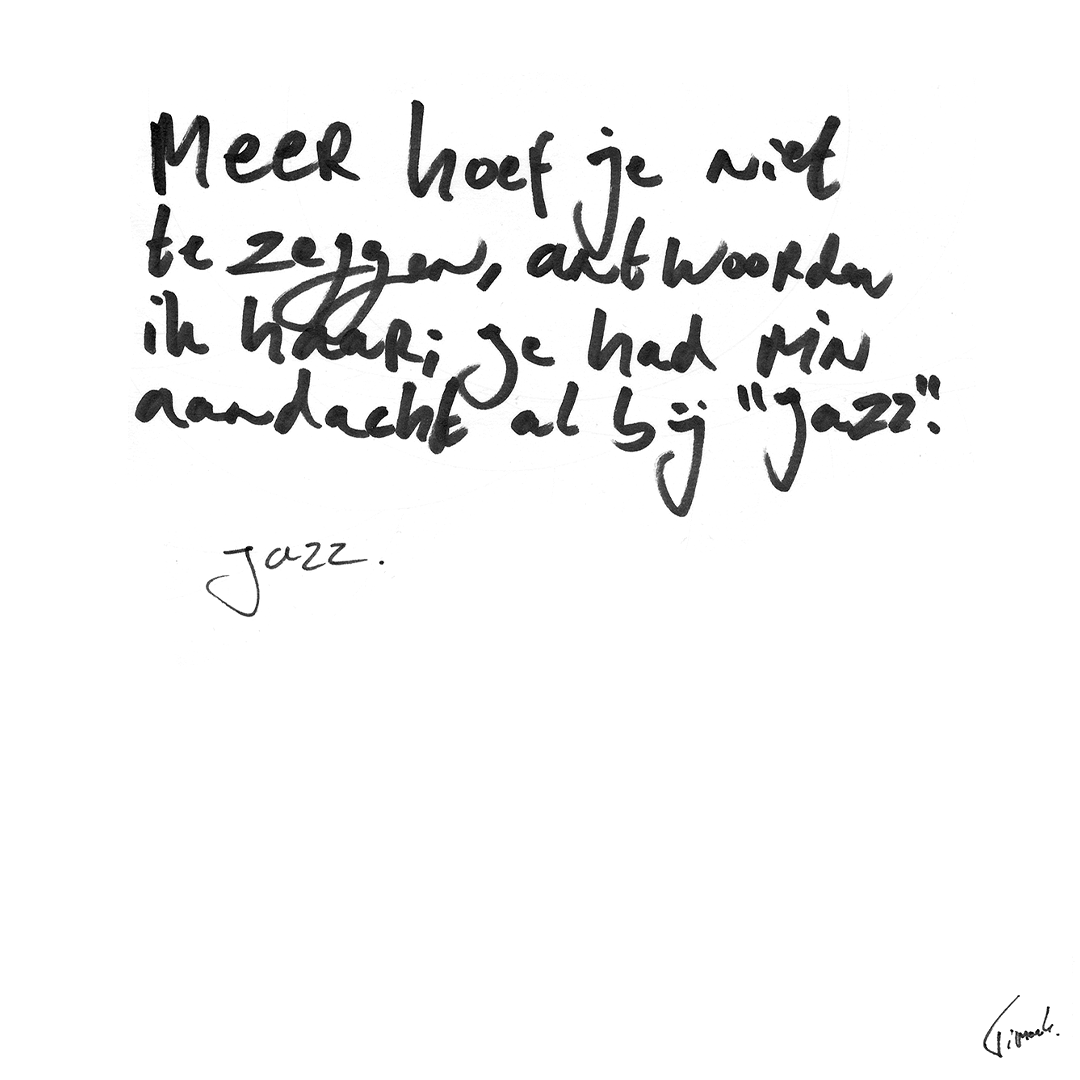 Meer hoef je niet
te zeggen, antwoorden
ik haar; je had m'n
aandacht al bij "jazz".
jazz.